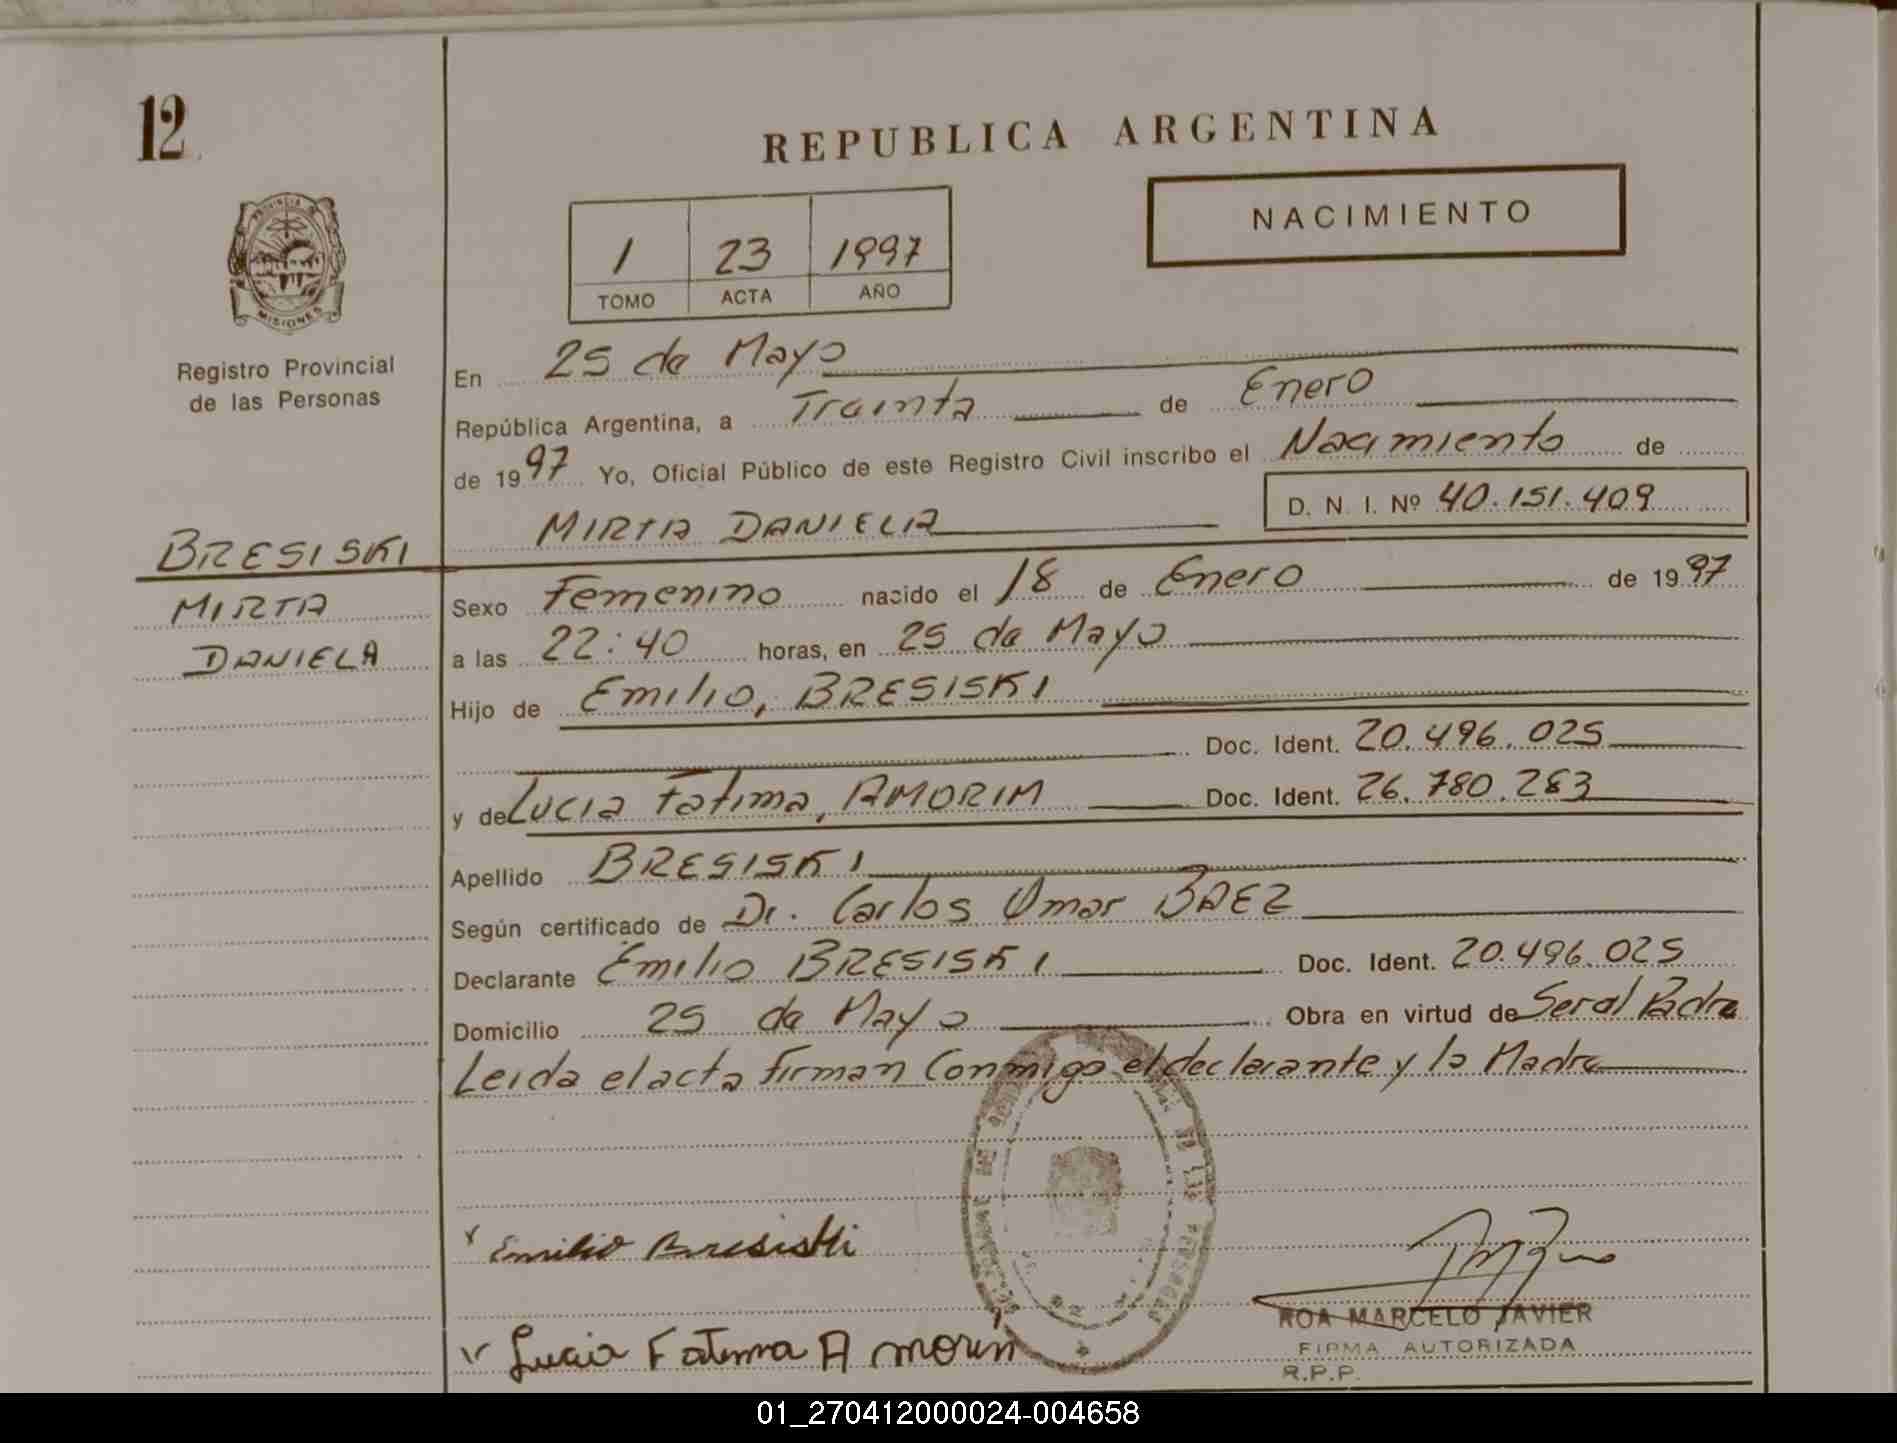 12
REPUBLICA ARGENTINA
NACIMIENTO
1 23 1997
TOMO ACTA AÑO
PROVINCIA DE
MISIONES
Registro Provincial
de las Personas
En 25 de Mayo
República Argentina, a Treinta de Enero
de 1997 Yo, Oficial Público de este Registro Civil inscribo el Nacimiento de
D. N. I. Nº 40.151.409
MIRTA DANIELA
BRESISKI
MIRTA
DANIELA
Sexo Femenino nacido el 18 de Enero de 1997
a las 22:40 horas, en 25 de Mayo
Hijo de Emilio, BRESISKI
Doc. Ident. 20.496.025
y de Lucia Fatima, AMORIM Doc. Ident. 26.780.283
Apellido BRESISKI
Según certificado de Dr. Carlos Omar BAEZ
Declarante Emilio BRESISKI Doc. Ident. 20.496.025
Domicilio 25 de Mayo Obra en virtud de Ser al Padre
Leida el acta firman Conmigo el declarante y la Madre
Emilio Bresiski
ROA MARCELO JAVIER
FIRMA AUTORIZADA
R.P.P.
Lucia Fatima Amorin
01_270412000024-004658